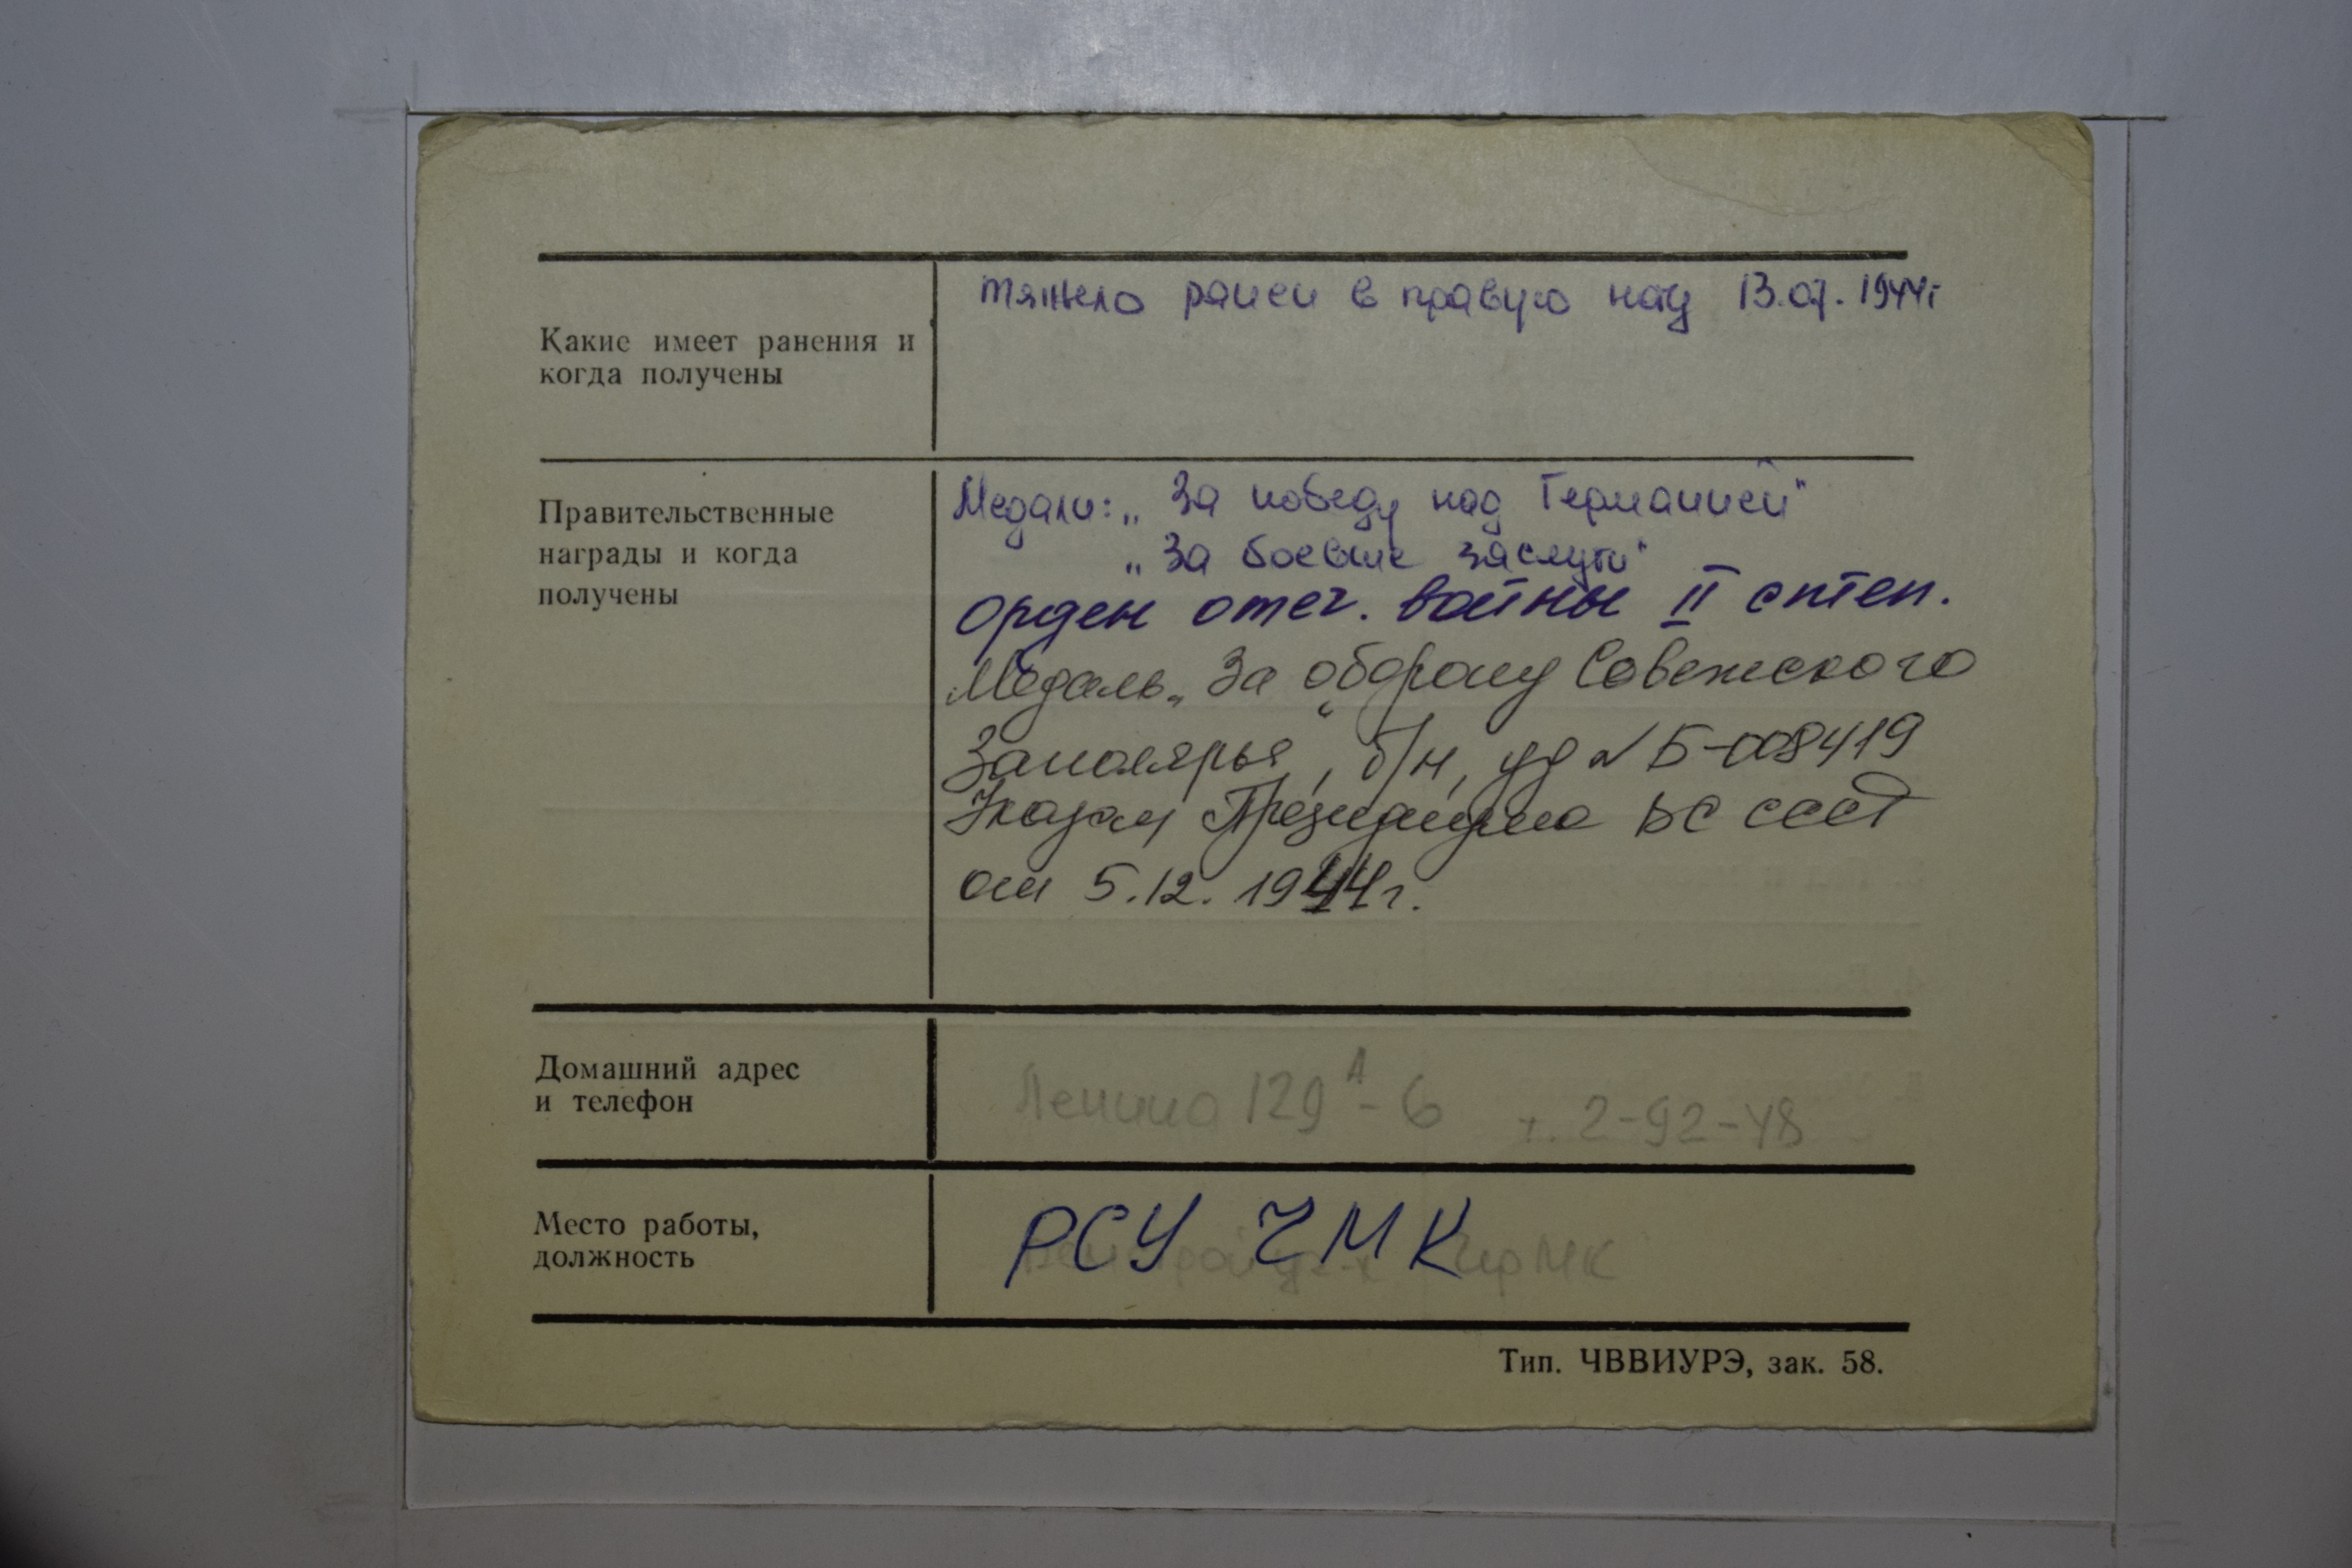 Какие имеет ранения и
когда получены
тяжело ранен в правую ногу 13.07.1944г
Правительственные
награды и когда
получены
Медали: „За победу над Германией"
„За боевые заслуги"
Орден отеч. войны II степ.
Медаль „За оборону Советского
Заполярья", б/н, уд № Б-008419
Указом Президиума ВС СССР
от 5.12.1944г.
Домашний адрес
и телефон
Ленина 129А-6 т. 2-92-48
Место работы,
должность
РСУ ЧМК
Тип. ЧВВИУРЭ, зак. 58.